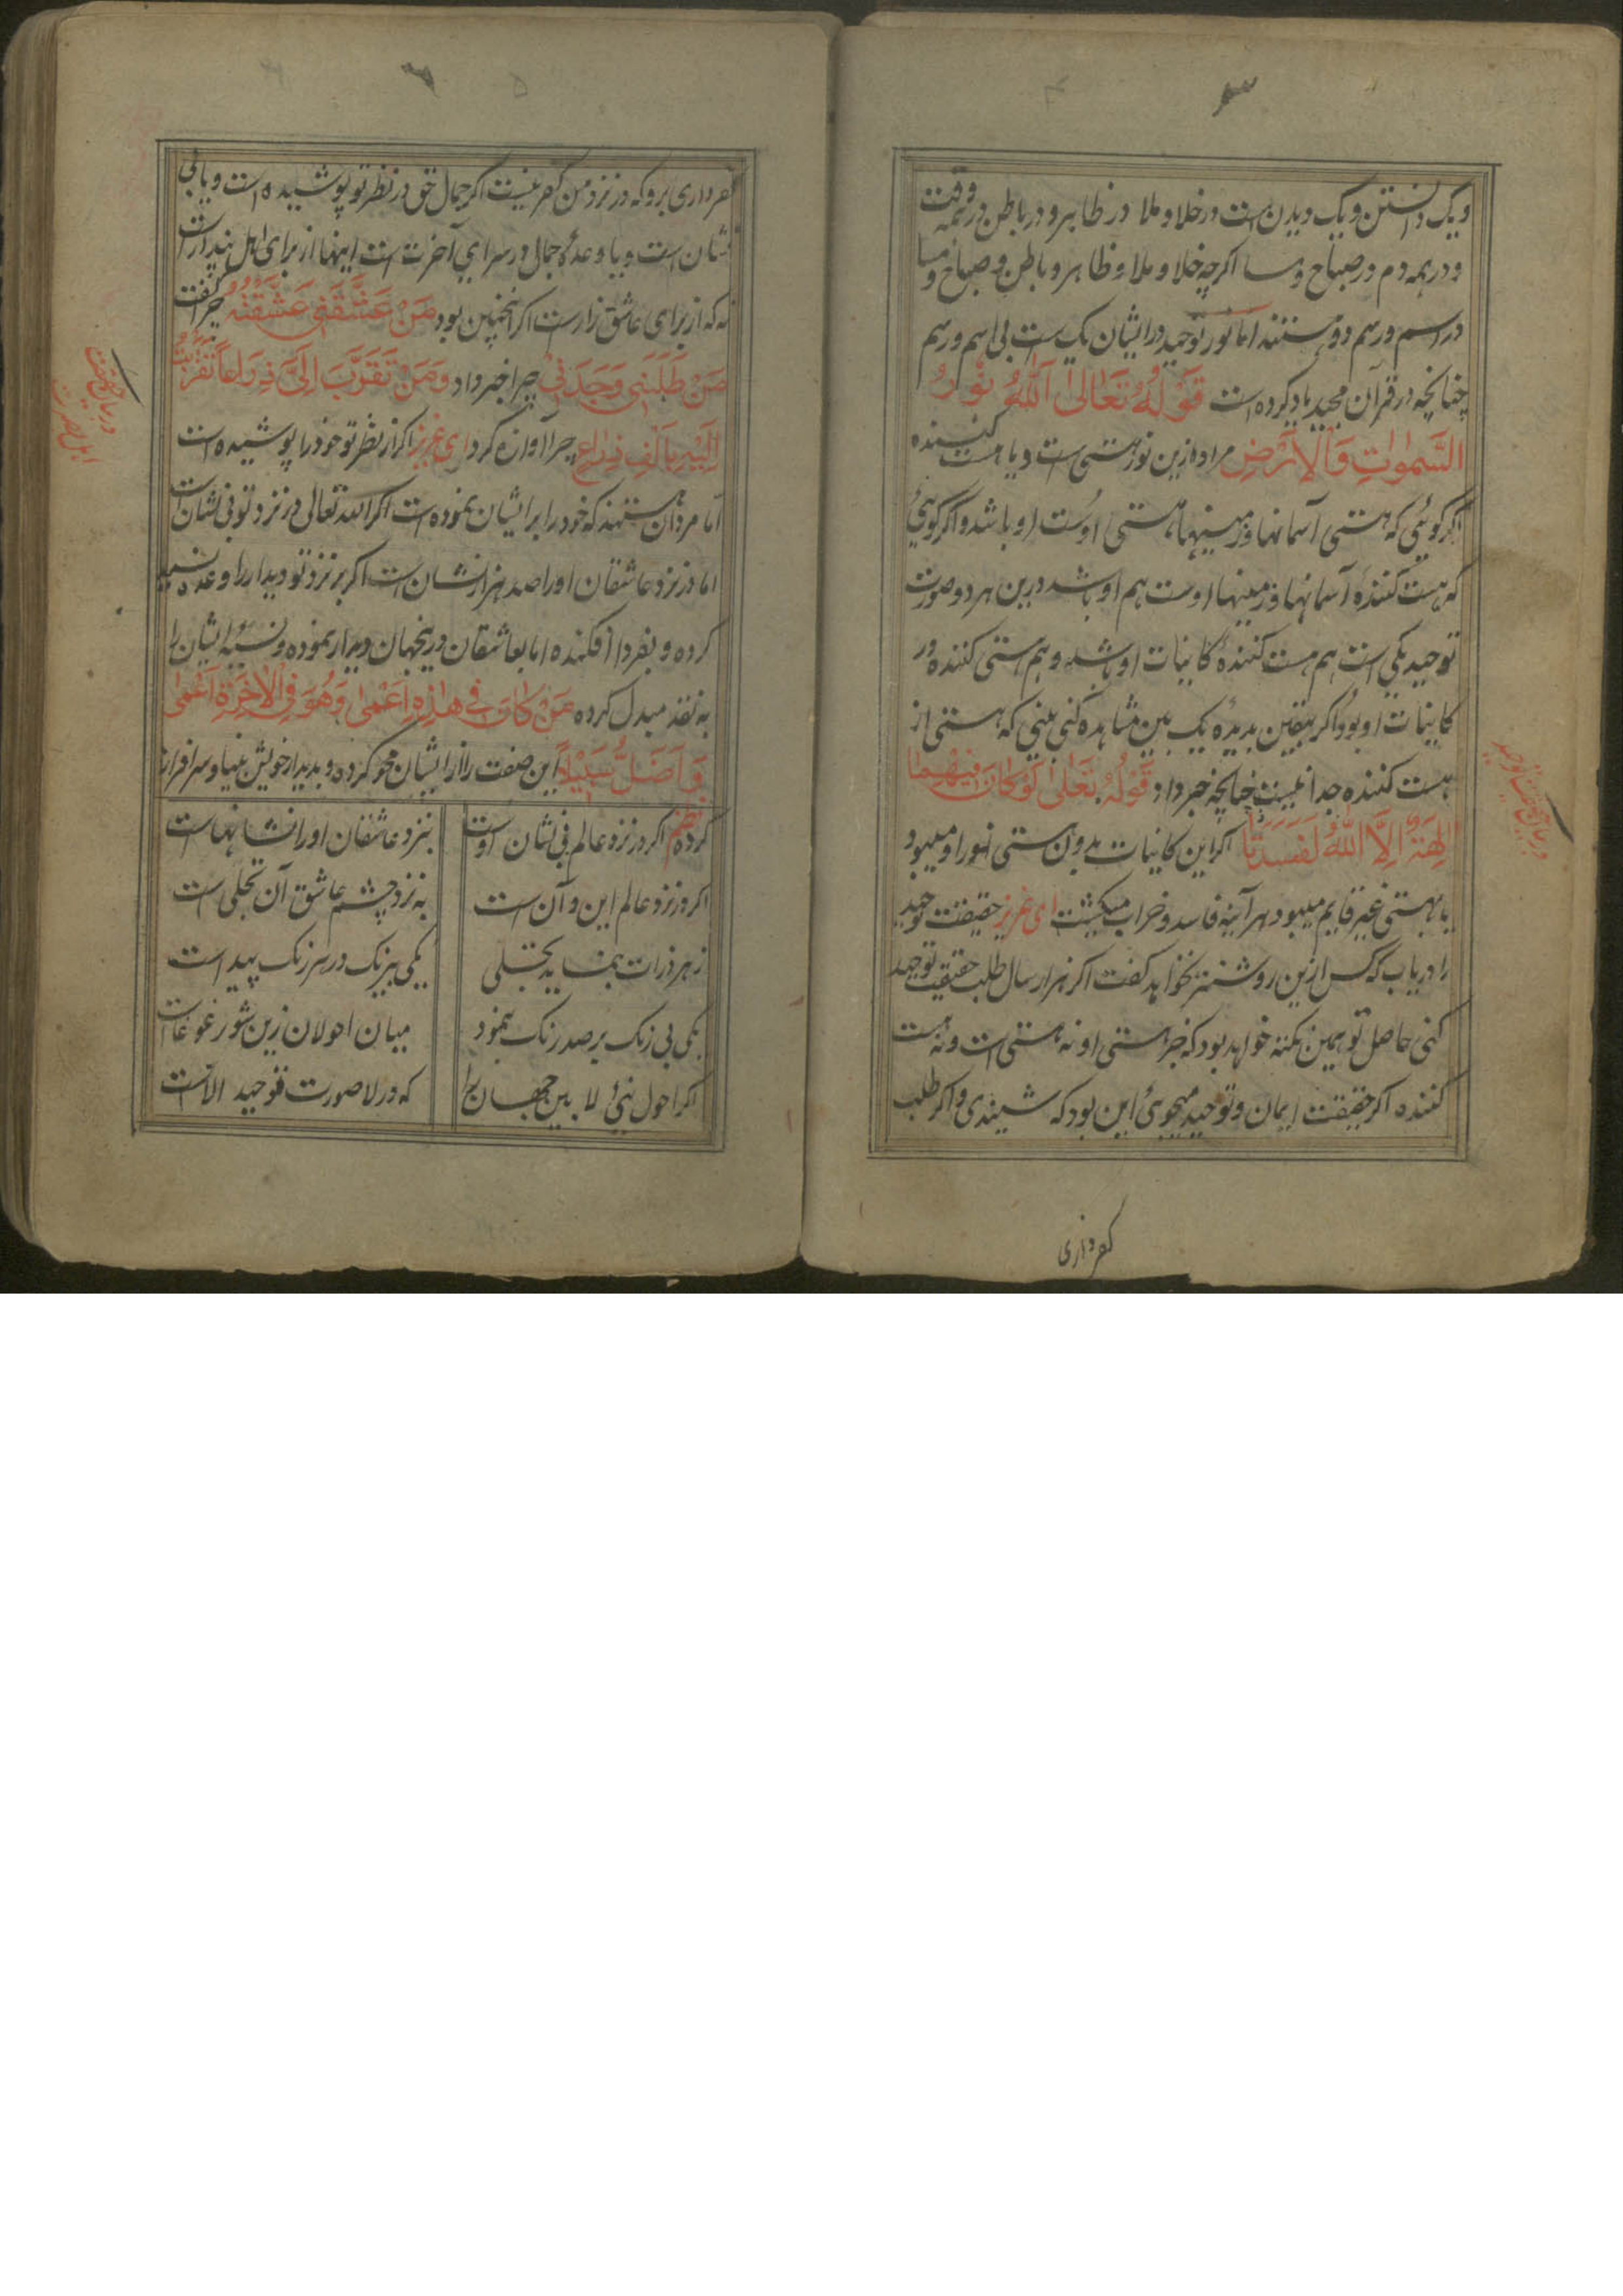 ویک دانستن ویک دیدن است در خلا و ملا در ظاهر و در باطن در همه وقت
و در همه دم در صباح و مسا اگرچه خلا و ملا و ظاهر و باطن و صباح و مسا
در اسم و رسم دو هستند اما نور توحید در ایشان یک است بی اسم و رسم
چنانچه در قرآن مجید یاد کرده است قَوْلُهُ تَعَالٰی اَللّٰهُ نُوْرُ
السَّمٰوٰاتِ وَالْاَرْضِ مراد ازین نور هستی است و یا هست کننده
اگر گوئی که هستی آسمانها و زمینها هستی اوست او باشد و اگر گوئی
که هست کننده آسمانها و زمینها اوست هم او باشد درین هر دو صورت
توحید یکی است هم هست کننده کاینات او باشد و هم هستی کننده در
کاینات او بود و اگر بیقین بدیده یک بین مشاهده کنی بینی که هستی از
هست کننده جدا نیست چنانچه خبر داد قَوْلُهُ تَعَالٰی لَوْ کَانَ فِیْهِمَا
اٰلِهَةٌ اِلَّا اللّٰهُ لَفَسَدَتَا اگر این کاینات بدون هستی او میبود
یا بهستی غیر قایم میبود هر آینه فاسد و خراب میگشت ای عزیز حقیقت توحید
را دریاب که کس ازین روشنتر نخواهد گفت اگر هزار سال طلب حقیقت توحید
کنی حاصل تو همین نکته خواهد بود که جز هستی او نه هستی است و نه هست
کننده اگر حقیقت ایمان و توحید میجوئی این بود که شنیدی و اگر طلب
کفر داری
کفر داری برو که در نزد من کفر نیست اگر جمال حق در نظر تو پوشیده است و یا بی
نشان است و یا وعده جمال در سرای آخرت است اینها از برای اهل پندار است
نه که از برای عاشق زار است اگر انچنین بود مَنْ عَشَّقَنِی عَشَّقْتُهُ چرا گفت
مَنْ طَلَبَنِی وَجَدَنِی چرا خبر داد وَمَنْ تَقَرَّبَ اِلَیَّ ذِرَاعاً تَقَرَّبْتُ
اِلَیْهِ بِاَلْفِ ذِرَاعٍ چرا آوازه کرد ای عزیز اگر از نظر تو خود را پوشیده است
اما مردان هستند که خود را بر ایشان بنموده است اگر الله تعالی در نزد تو بی نشان است
اما در نزد عاشقان او را صد هزار نشان است اگر بر نزد تو دیدار را وعده نسیه
کرده و بفردا افکنده اما بعاشقان درینجهان دیدار نموده و نسیه ایشان را
به نقد مبدل کرده مَنْ کَانَ فِی هٰذِهٖ اَعْمٰی وَهُوَ فِی الْاٰخِرَةِ اَعْمٰی
وَ اَضَلُّ سَبِیْلاً این صفت را از ایشان محو کرده و بدیدار خویش بینا و سرافراز
کرده نظم اگر در نزد عالم بی نشان اوست
بنزد عاشقان او را نشانهاست
اگر در نزد عالم این و آن است
به نزد چشم عاشق آن تجلی است
ز هر ذرات بنماید تجلی
یکی بیرنگ در هر رنگ پیداست
یکی بی رنگ بر صد رنگ بنمود
میان احولان زین شور غوغاست
اگر احول نئی لا بین جهان را
که در لا صورت توحید الاست